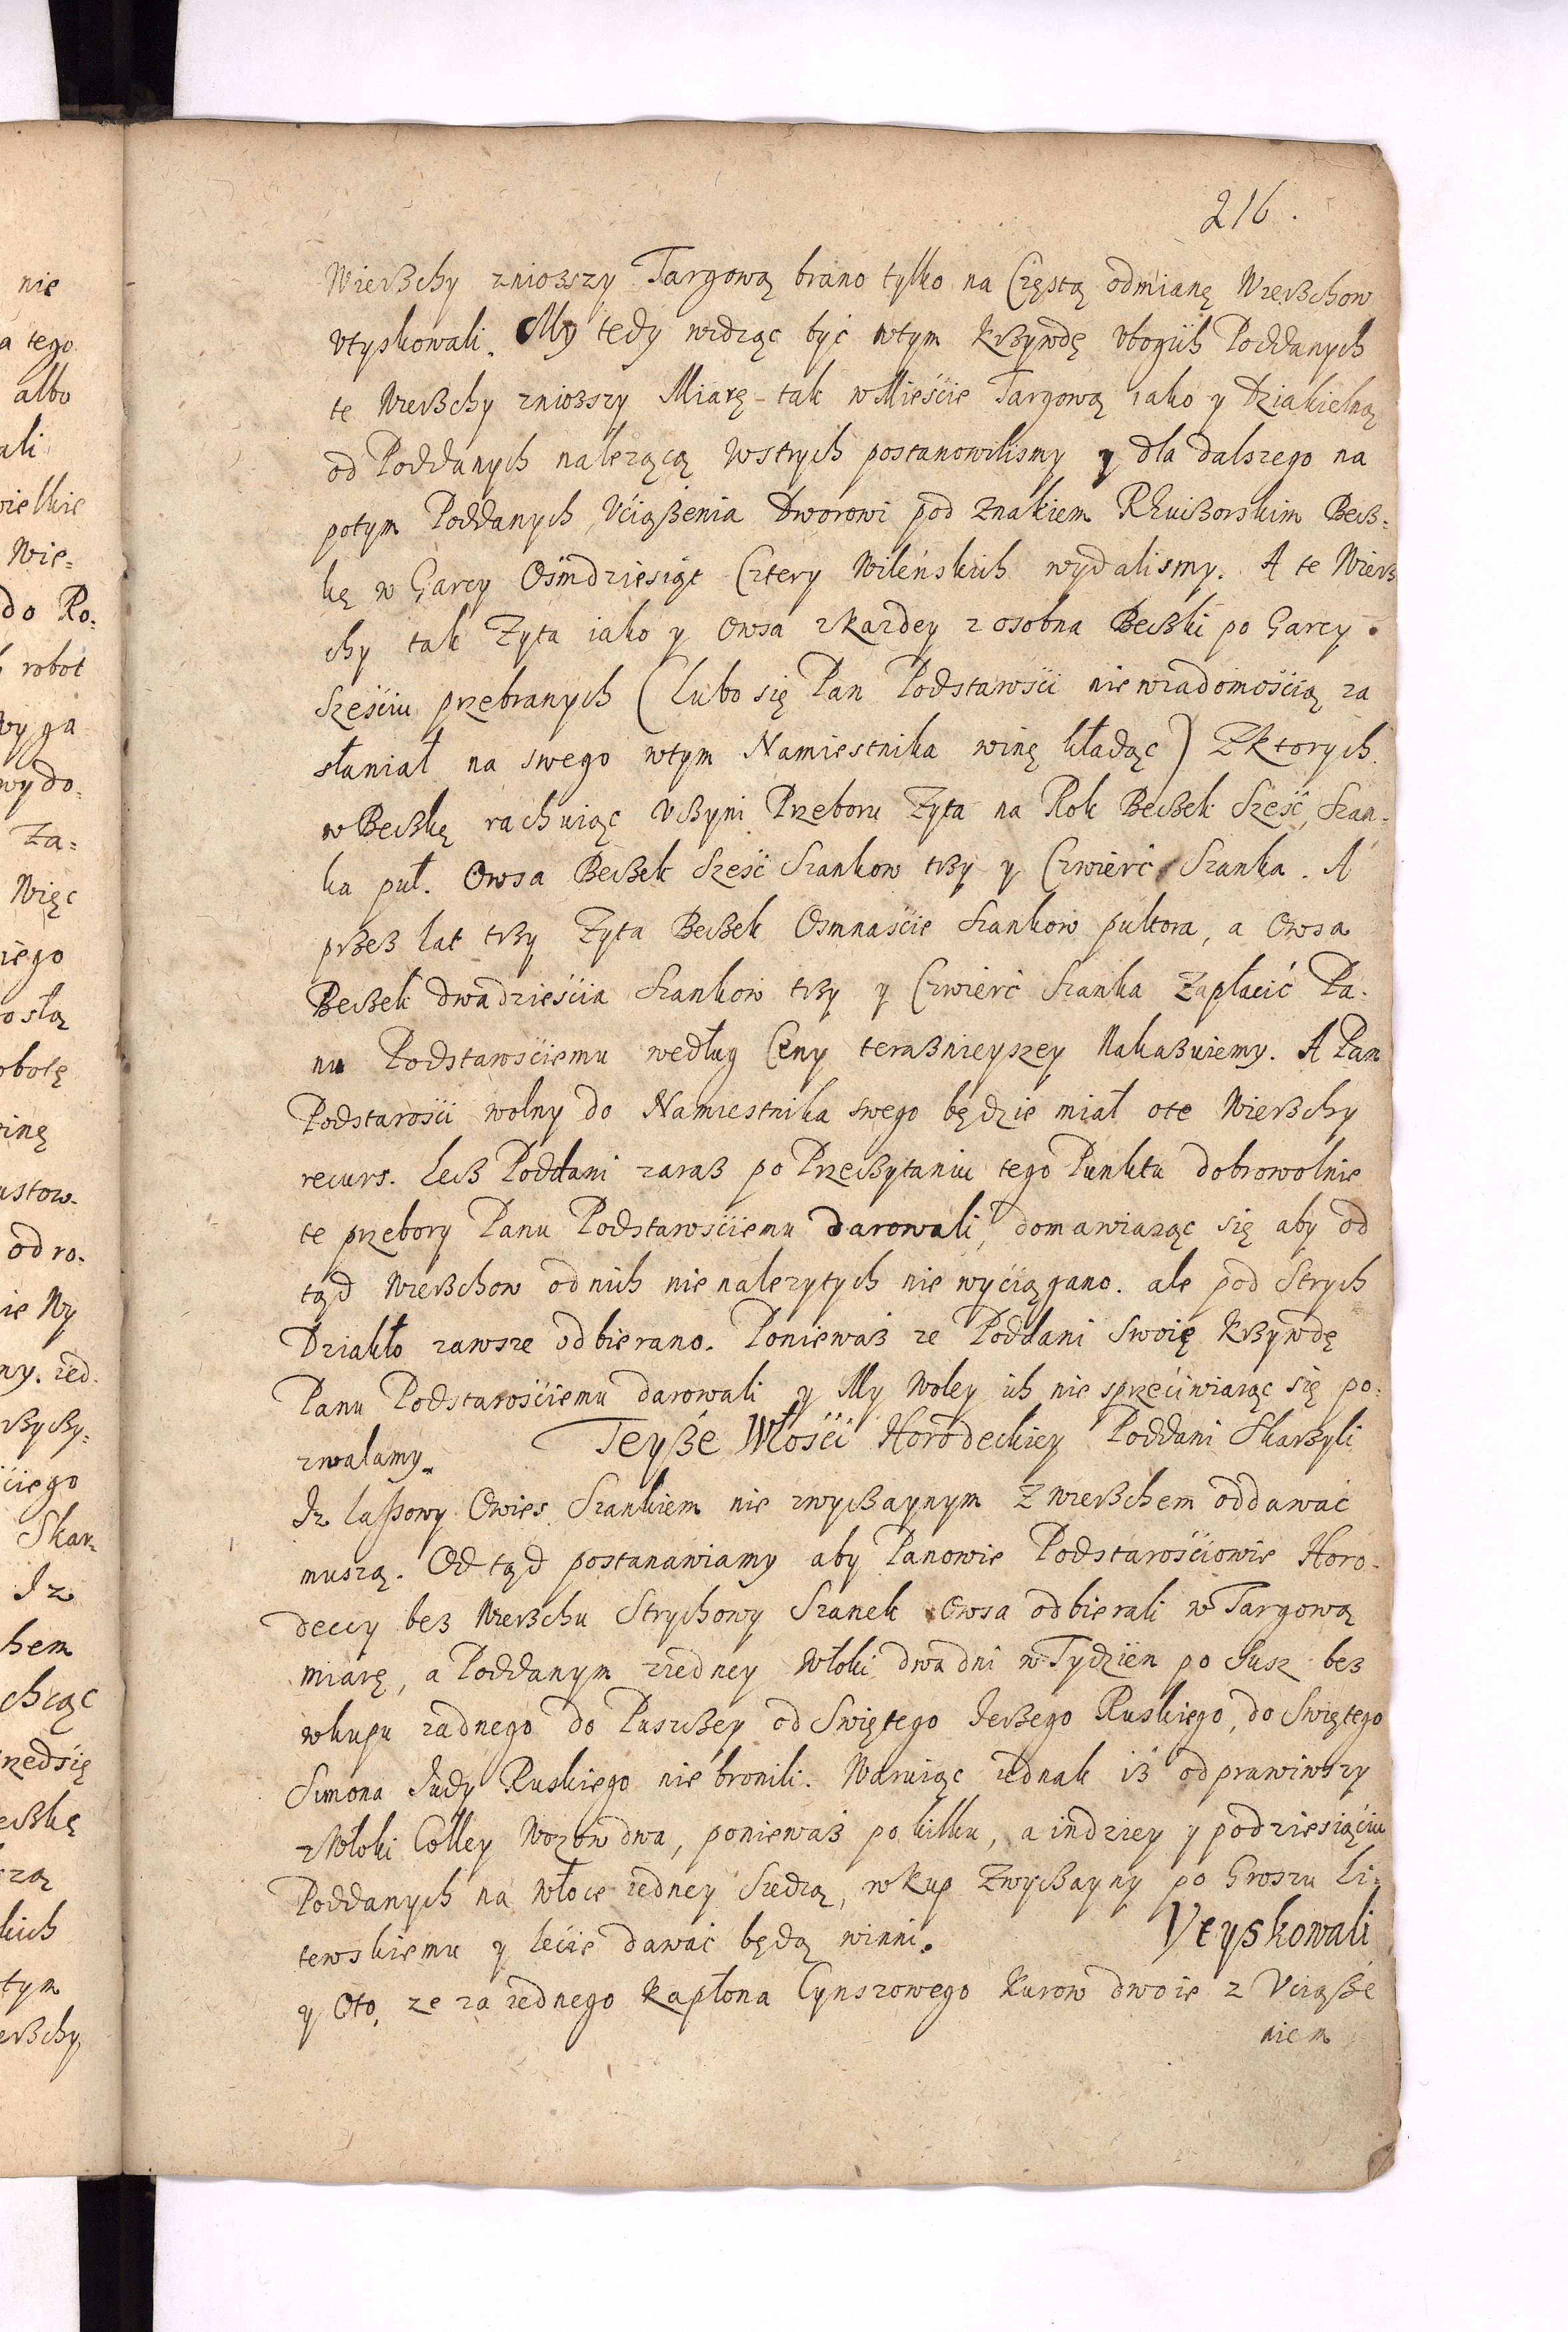 216.
Wierßchy zniozszy Targową brano tylko na Częstą odmianę Wierßchow
Vtyskowali. My tedy widząc być wtym Krzywdę Vbogich Poddanych
te Wierßchy zniozszy Miarę tak w Mieście Targową iako y Dziakielną
od Poddanych należącą Wstrych postanowilismy y dla dalszego na
potym Poddanych Vciążenia Dworowi pod znakiem Rewizorskim Becz=
kę w Garcy Ośmdziesiąt Cztery Wileńskich wydalismy. A te Wierz
chy tak Zyta iako y Owsa z Kazdey z osobna Beczki po Garcy
Sześciu przebranych (lubo się Pan Podstarości niewiadomością za
słaniał na swego wtym Namiestnika winę kładąc) Z Ktorych
w Beczkę rachuiąc Vczyni Przeboru Zyta na Rok Beczek Sześć, Szan-
ka puł. Owsa Beczek Sześć Szankow trzy y Czwierć Szanka. A
przez lat trzy Zyta Beczek Osmnaście Szankow pultora, a Owsa
Beczek dwadzieścia Szankow trzy y Czwierć Szanka Zapłacić Pa-
nu Podstarościemu według Ceny teraznieyszey Nakazuiemy. A Pan
Podstarości wolny do Namiestnika swego będzie miał ote Wierzchy
recurs. Lecz Poddani zaraz po Przeczytaniu tego Punktu dobrowolnie
te przebory Panu Podstarościemu darowali, domawiaiąc się aby od
tąd Wierzchow od nich nie nalezytych nie wyciągano. ale pod Strych
Dziakło zawsze odbierano. Poniewaz ze Poddani Swoię Krzywdę
Panu Podstarościemu darowali y My Woley ich nie sprzeciwiaiąc się po-
zwalamy. Teyże Włości Horodeckiey Poddani Skarzyli
Iz lassowy Owies Szankiem nie zwyczaynym Z wierzchem oddawać
muszą. Od tąd postanawiamy aby Panowie Podstarościowie Horo-
deccy bez Wierzchu Strychowy Szanek Owsa odbierali w Targową
miarę, a Poddanym z iedney Włoki dwa dni w Tydzień po Susz bez
wkupu zadnego do Puszczey od Swiętego Ierzego Ruskiego, do Swiętego
Simona Iudy Ruskiego nie bronili. Waruiąc iednak iż odprawiwszy
z Włoki Colley Wozow dwa, poniewaz po kilku, a indziey y po dziesiąciu
Poddanych na Włoce iedney Siedzą, wkup Zwyczayny po Groszu Li-
tewskiemu y lecie dawać będą winni. Vtyskowali
y Oto, ze za iednego Kapłona Cynszowego Kurow dwoie z Vciąże
niem
nie
a tego
albo
ali
wielkie
Wie=
do Po:
robot
wyga
wydo:
Za=
Więc
iego
osłą
obotę
inę
ustow
od ro:
ie Wy
ny. ied
ciego
Skar-
Iz
hem
chcąc
rzedsię
eczkę
szą
kich
tym
erzchy